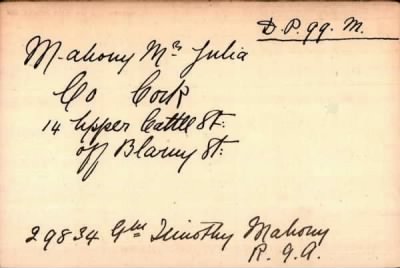 D.P. 99. M.
Mahony Mrs Julia
Co Cork
14 Upper Cattle St:
off Blarny St:
29834 Gnr Timothy Mahony
R.G.A.